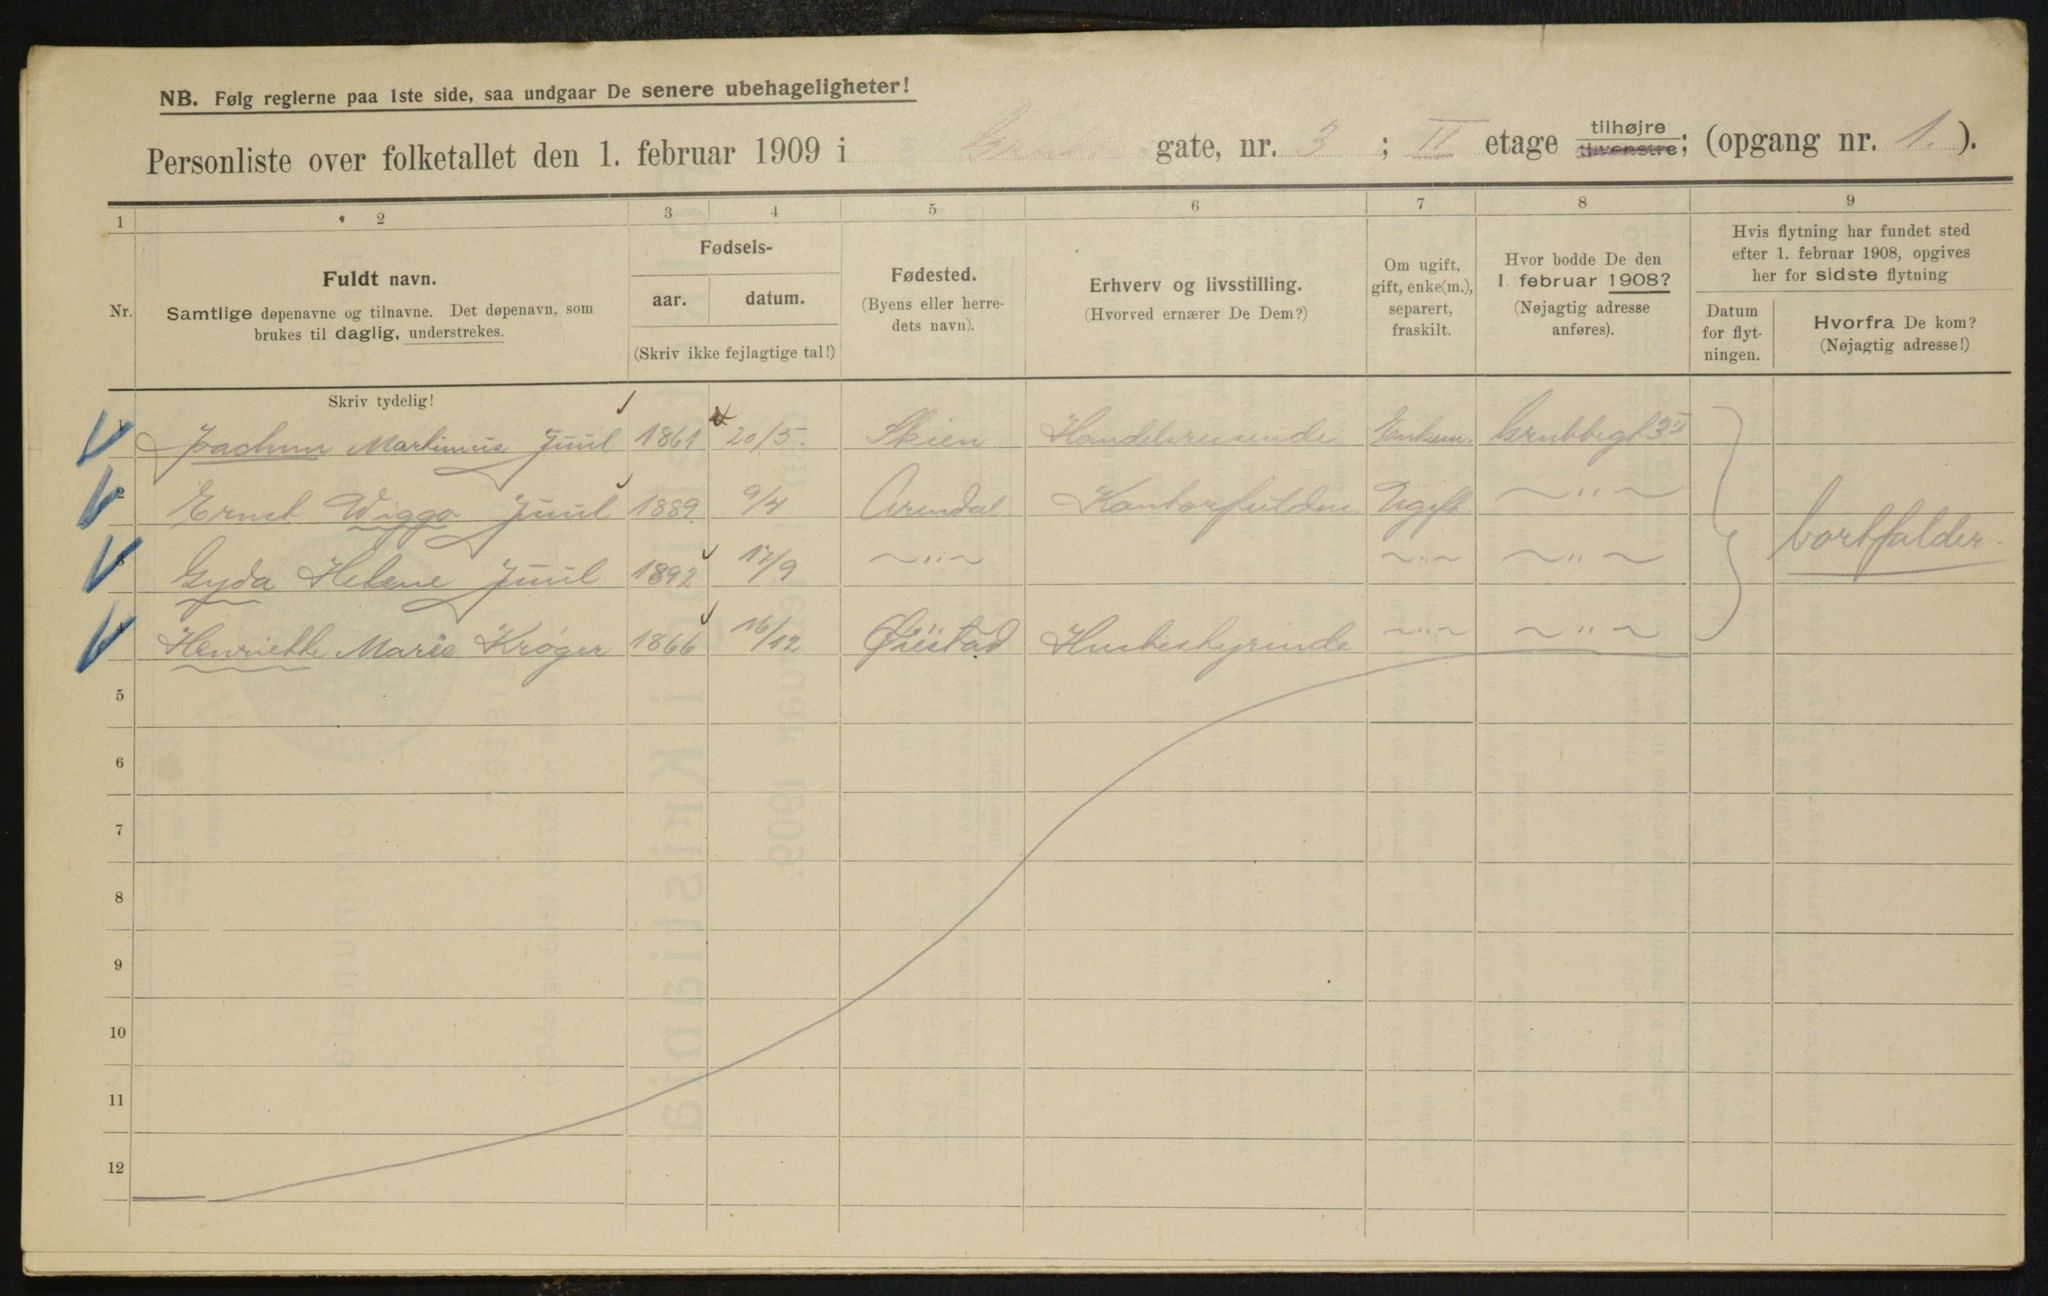 NB. Følg reglerne paa 1ste side, saa undgaar De senere ubehageligheter!
Personliste over folketallet den 1. februar 1909 i Grubbe gate, nr. 3 ; II etage tilhøjre tilvenstre; (opgang nr. 1.).
1 2 3 4 5 6 7 8 9
Nr.
Fuldt navn.
Samtlige døpenavne og tilnavne. Det døpenavn, som
brukes til daglig, understrekes.
Fødsels-
aar. datum.
(Skriv ikke fejlagtige tal!)
Fødested.
(Byens eller herre-
dets navn).
Erhverv og livsstilling.
(Hvorved ernærer De Dem?)
Om ugift,
gift, enke(m.),
separert,
fraskilt.
Hvor bodde De den
1. februar 1908?
(Nøjagtig adresse
anføres).
Hvis flytning har fundet sted
efter 1. februar 1908, opgives
her for sidste flytning
Datum
for flyt-
ningen.
Hvorfra De kom?
(Nøjagtig adresse!)
Skriv tydelig!
1 Joachim Martinius Juul 1861 20/5. Skien Handelsreisende Enkem. Grubbegt 3 II
2 Ernst Wiggo Juul 1889 9/4 Arendal Kontorfuldm. Ugift. ~"~
3 Gyda Helene Juul 1892 17/9 ~"~ ~"~ ~"~
bortfalder.
4 Henriette Marie Krøger 1866 16/12 Øiestad Husbestyrinde ~"~ ~"~
5
6
7
8
9
10
11
12